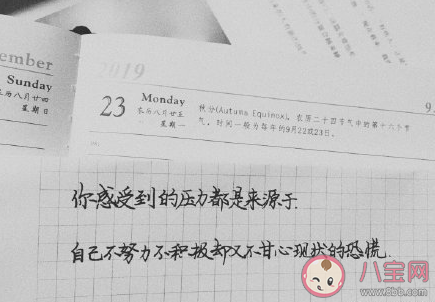 ember
2019
Sunday
农历八月廿四
星期日
23
Monday
农历八月廿五
星期一
秋分(Autumn Equinox)，农历二十四节气中的第十六个节
气，时间一般为每年的9月22或23日。
9
你感受到的压力都是来源于
自己不努力不积极却又不甘心现状的恐慌.
八宝网
www.8bb.com